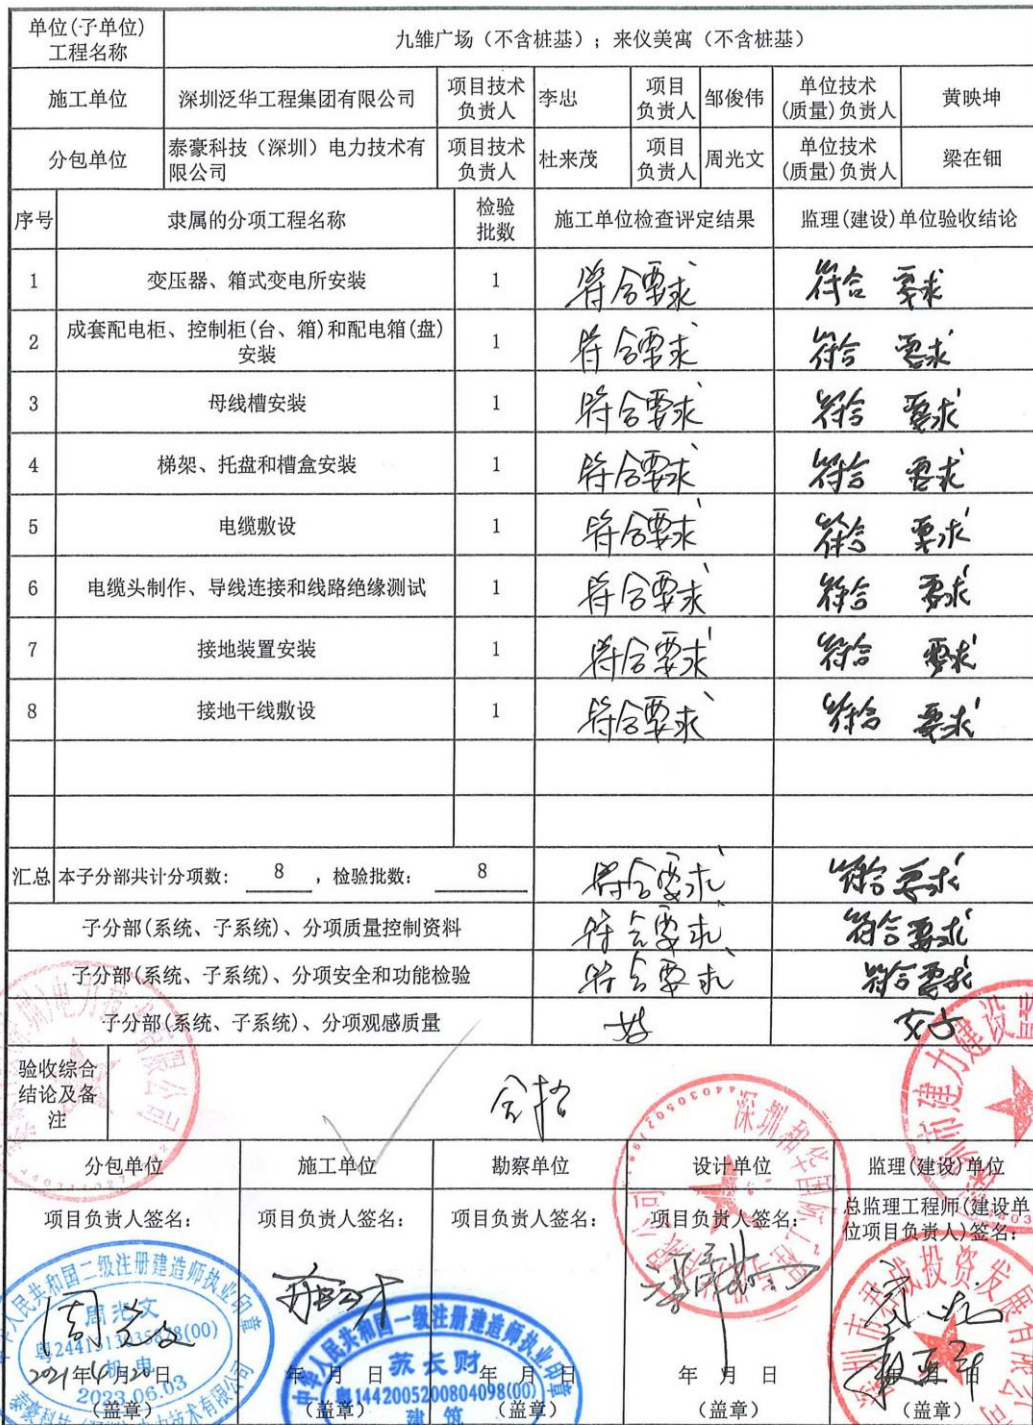 单位(子单位)
工程名称
九雏广场（不含桩基）；来仪美寓（不含桩基）
施工单位
深圳泛华工程集团有限公司
项目技术
负责人
李忠
项目
负责人
邹俊伟
单位技术
(质量)负责人
黄映坤
分包单位
泰豪科技（深圳）电力技术有
限公司
项目技术
负责人
杜来茂
项目
负责人
周光文
单位技术
(质量)负责人
梁在钿
序号
隶属的分项工程名称
检验
批数
施工单位检查评定结果
监理(建设)单位验收结论
1
变压器、箱式变电所安装
1
符合要求
符合 要求
2
成套配电柜、控制柜(台、箱)和配电箱(盘)
安装
1
符合要求
符合 要求
3
母线槽安装
1
符合要求
符合 要求
4
梯架、托盘和槽盒安装
1
符合要求
符合 要求
5
电缆敷设
1
符合要求
符合 要求
6
电缆头制作、导线连接和线路绝缘测试
1
符合要求
符合 要求
7
接地装置安装
1
符合要求
符合 要求
8
接地干线敷设
1
符合要求
符合 要求
汇总
本子分部共计分项数： 8 ，检验批数： 8
符合要求
符合要求
子分部(系统、子系统)、分项质量控制资料
符合要求
符合要求
子分部(系统、子系统)、分项安全和功能检验
符合要求
符合要求
子分部(系统、子系统)、分项观感质量
好
好
验收综合
结论及备
注
合格
分包单位
施工单位
勘察单位
设计单位
监理(建设)单位
项目负责人签名：
项目负责人签名：
项目负责人签名：
项目负责人签名：
总监理工程师(建设单
位项目负责人)签名：
周光文
2021年4月20日
(盖章)
年 月 日
(盖章)
年 月 日
(盖章)
年 月 日
(盖章)
年 月 日
(盖章)
人民共和国二级注册建造师执业印章
周光文
机电
2023.06.03
中华人民共和国一级注册建造师执业印章
苏长财
粤1442005200804098(00)
建筑